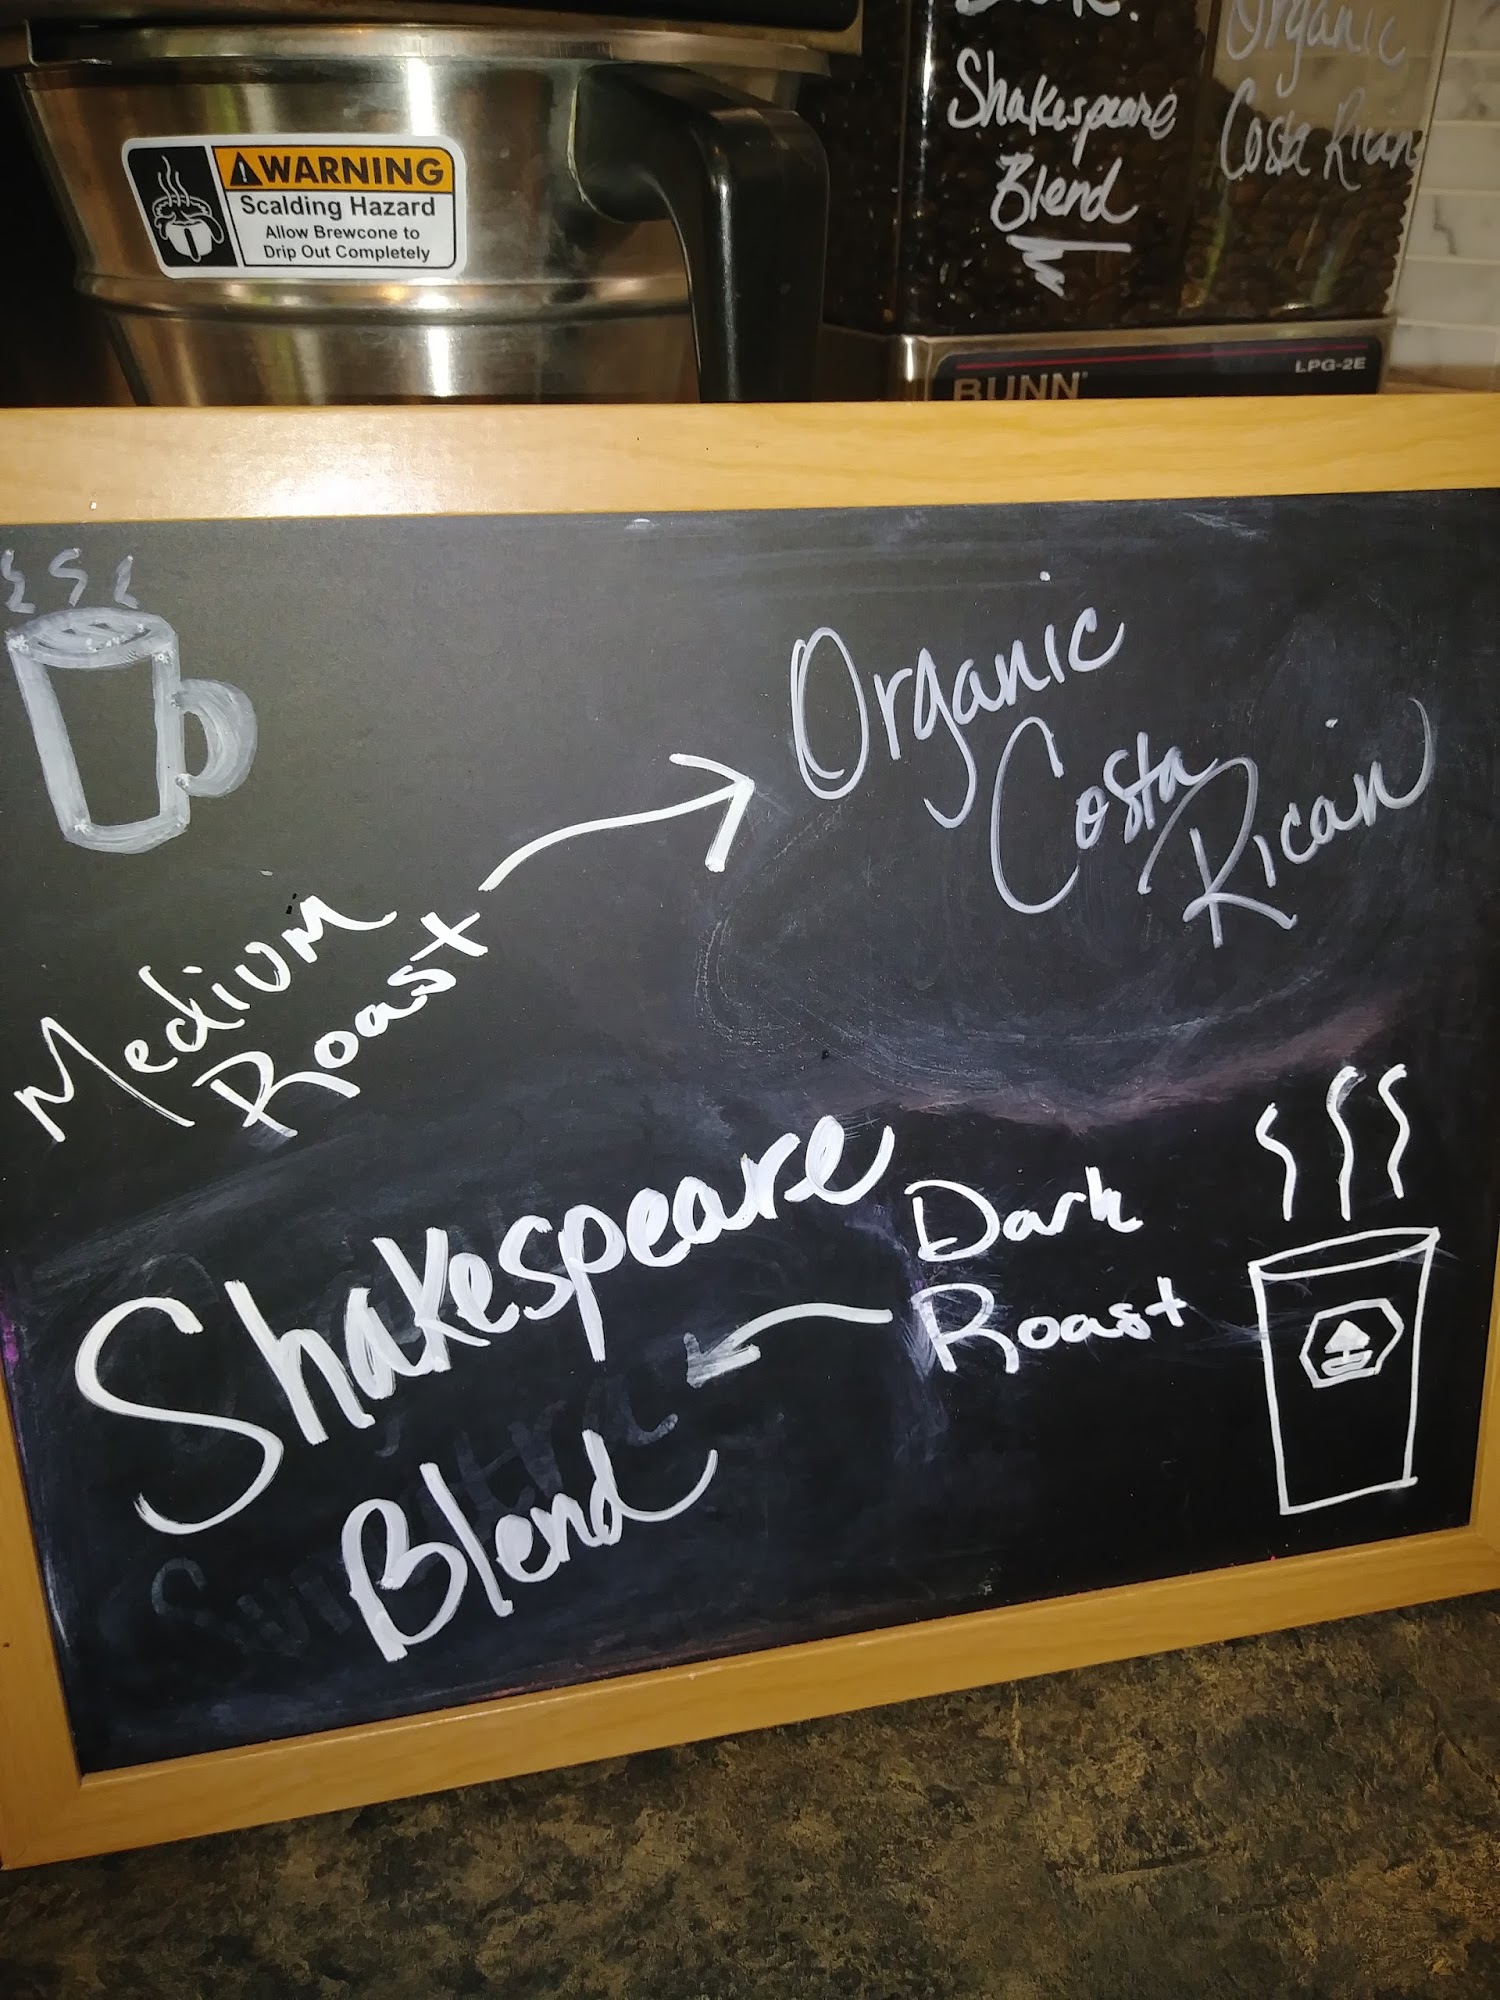 WARNING
Scalding Hazard
Allow Brewcone to
Drip Out Completely
Shakespeare
Blend
Organic
Costa Rican
BUNN
LPG-2E
Organic
Costa
Rican
Medium
Roast
Shakespeare
Blend
Dark
Roast